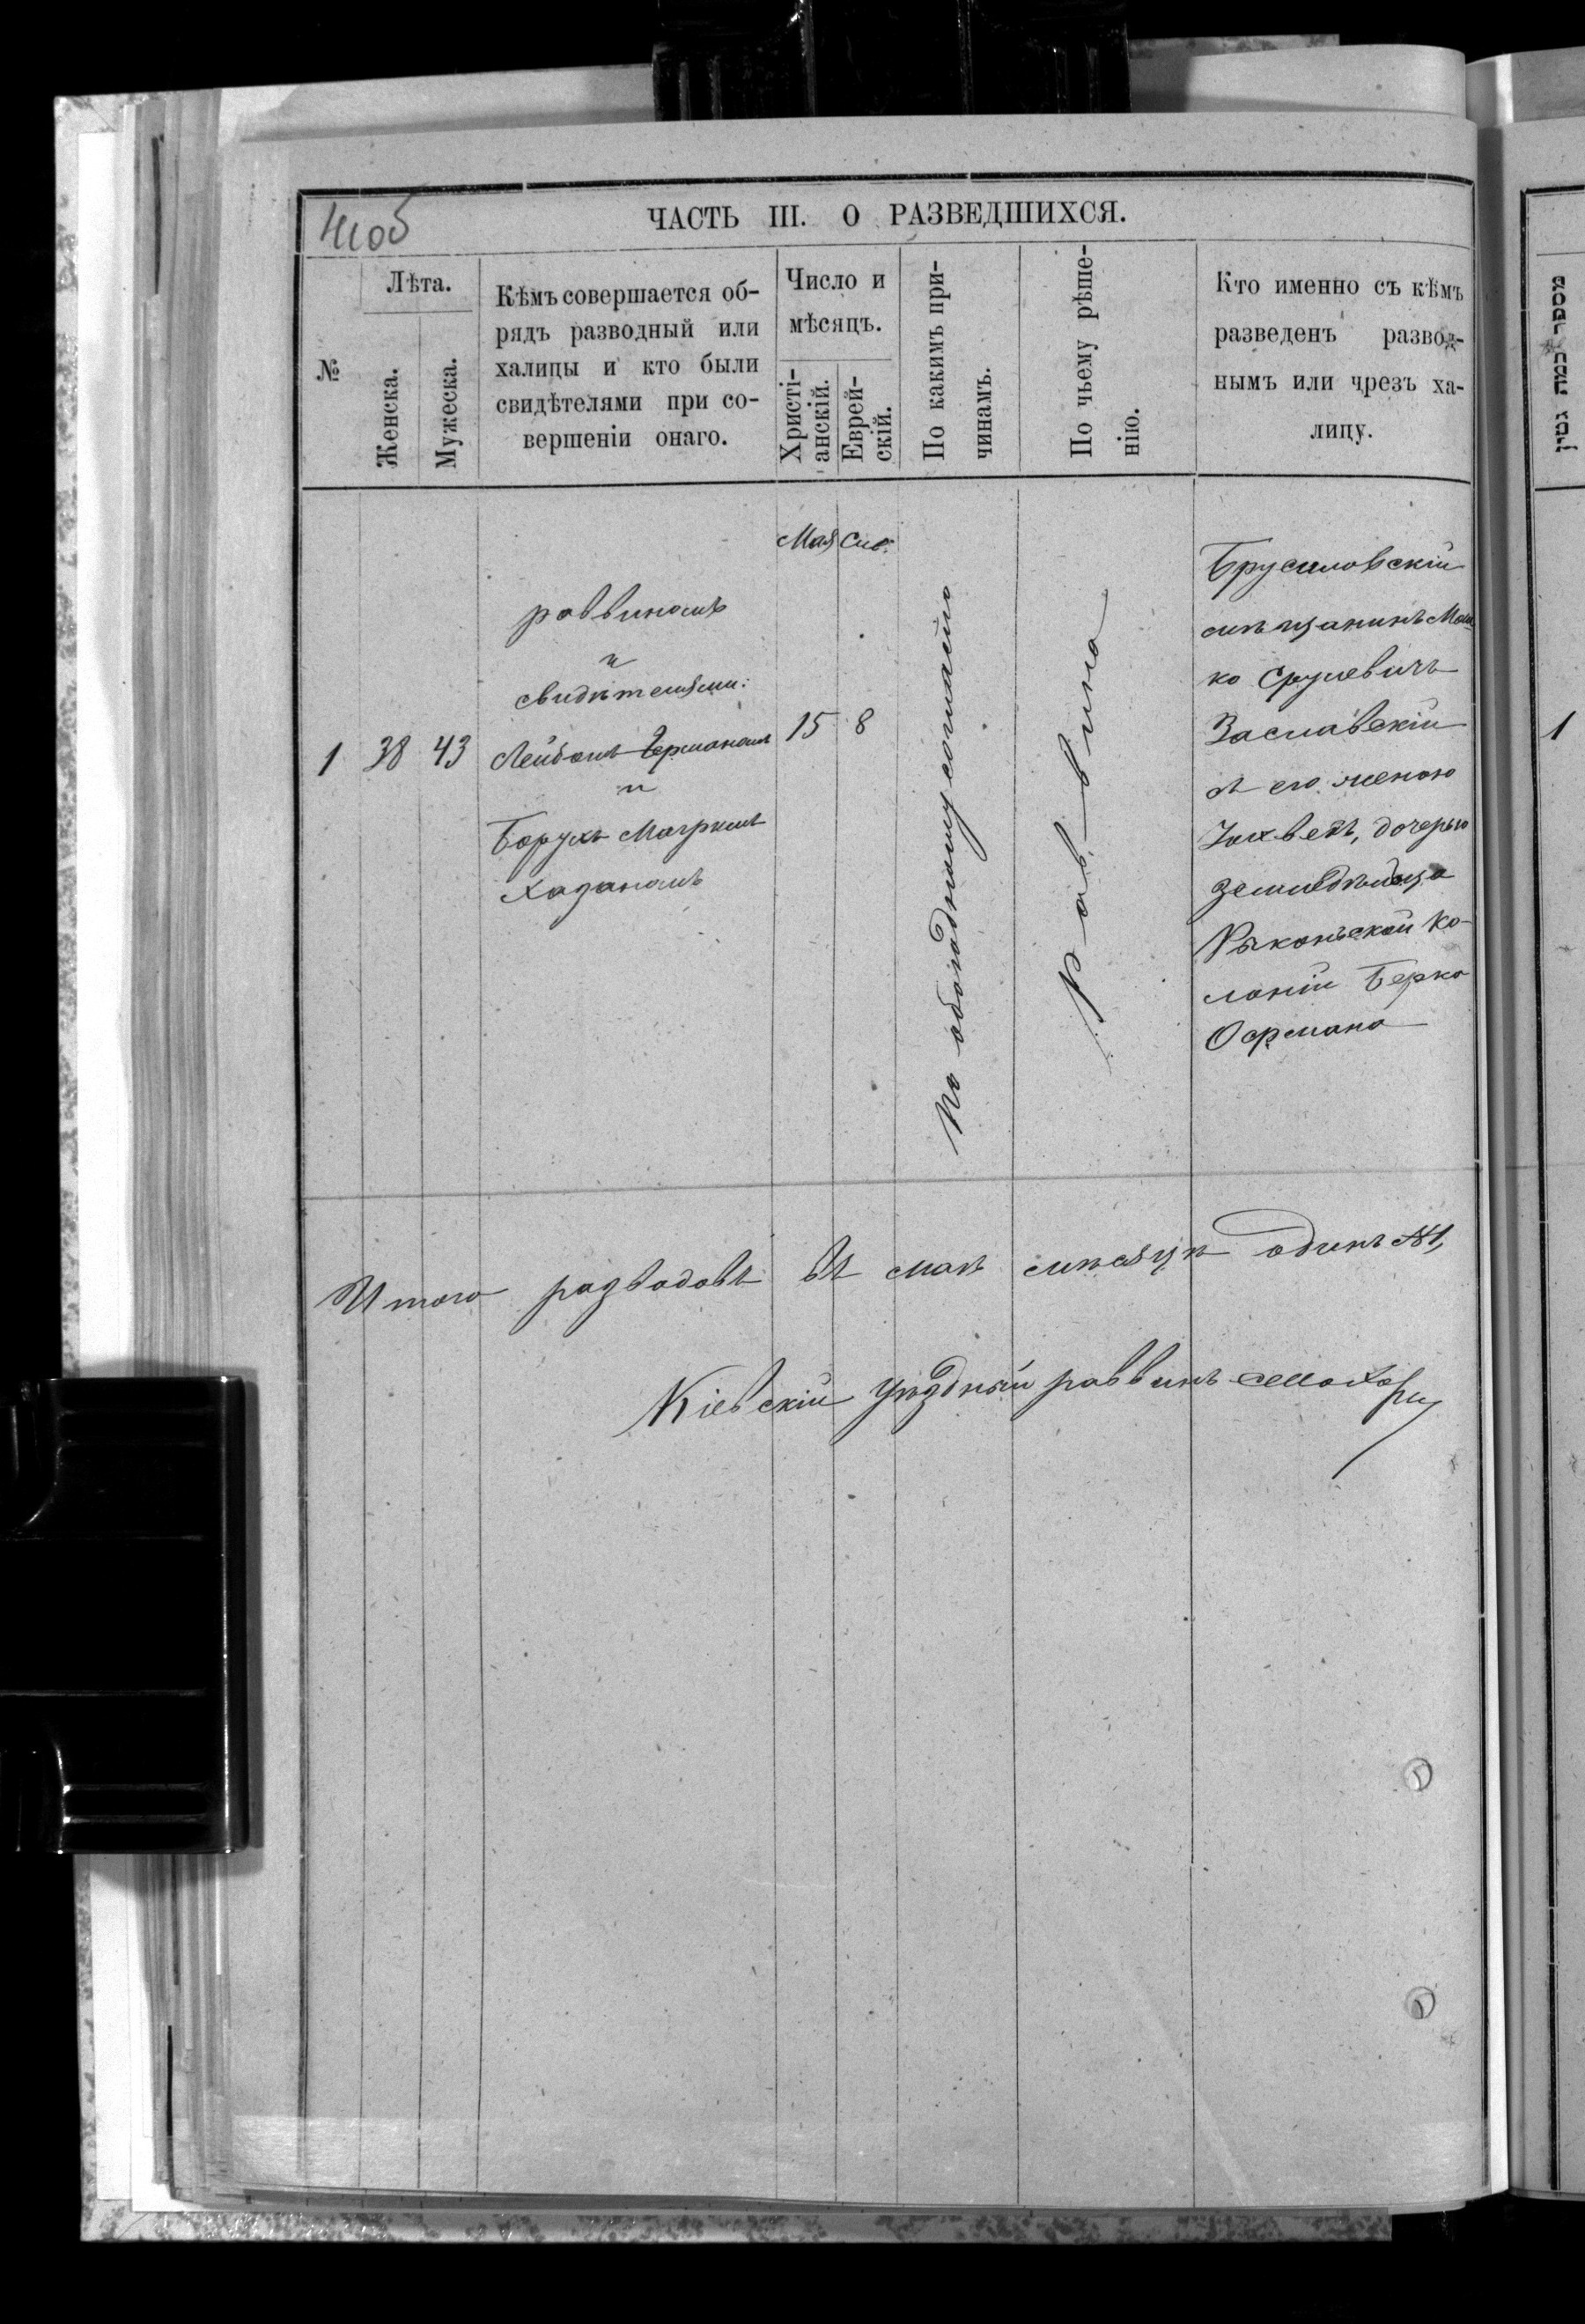 41об
ЧАСТЬ III. О РАЗВЕДШИХСЯ.
№
Лѣта.
Женска.
Мужеска.
Кѣмъ совершается об-
рядъ разводный или
халицы и кто были
свидѣтелями при со-
вершеніи онаго.
Число и
мѣсяцъ.
Христі-
анскій.
Еврей-
скій.
По какимъ при-
чинамъ.
По чьему рѣше-
нію.
Кто именно съ кѣмъ
разведенъ развод-
нымъ или чрезъ ха-
лицу.
Мая Сив.
1 38 43
раввиномъ
и
свидѣтелями:
Лейбомъ Германомъ
и
Борухъ Маркомъ
Хазаномъ
15 8
По обоюдному согласію
раввина
Брусиловскій
мѣщанинъ Мош
ко Срулевичъ
Заславскій
съ его женою
дочерью
земледѣльца
Рыконьской ко-
лоніи Берка
Офмана
Итого разводовъ въ маѣ мѣсяцѣ одинъ №1,
Кіевскій уѣздный раввинъ
מספר כמה גטין
1